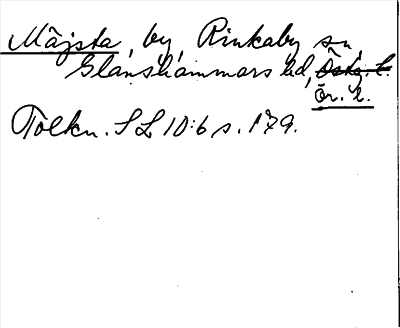 Mäjsta, by, Rinkaby sn,
Glanshammars hd, Östg. l.
Ör. l.
Tolkn. SL 10:6 s. 179.